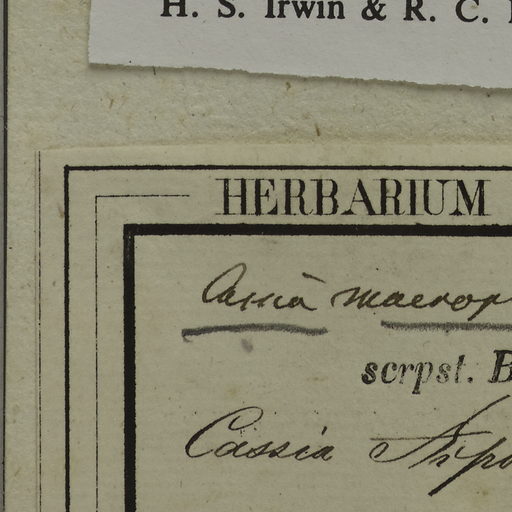 H. S. Irwin & R. C.
HERBARIUM
Cassia macrop
scrpst. B
Cassia